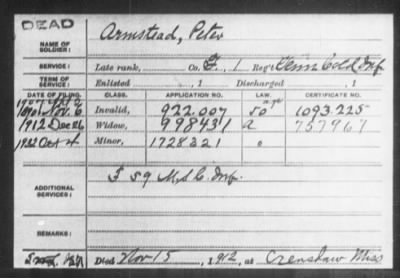 DEAD
NAME OF SOLDIER: Armstead, Peter
SERVICE: Late rank, Co. F, 1 Reg't Tenn Cold Inf.
TERM OF SERVICE: Enlisted , 1 Discharged , 1
DATE OF FILING. CLASS. APPLICATION NO. LAW. CERTIFICATE NO.
1890 Nov. 6 Invalid, 922.007 1093.225
1912 Dec 26 Widow, 998431 a 757967
1922 Oct 4 Minor, 1728221
ADDITIONAL SERVICES: F 59 U.S.C. Inf.
REMARKS:
Died Nov 15, 1912, at Crenshaw Miss